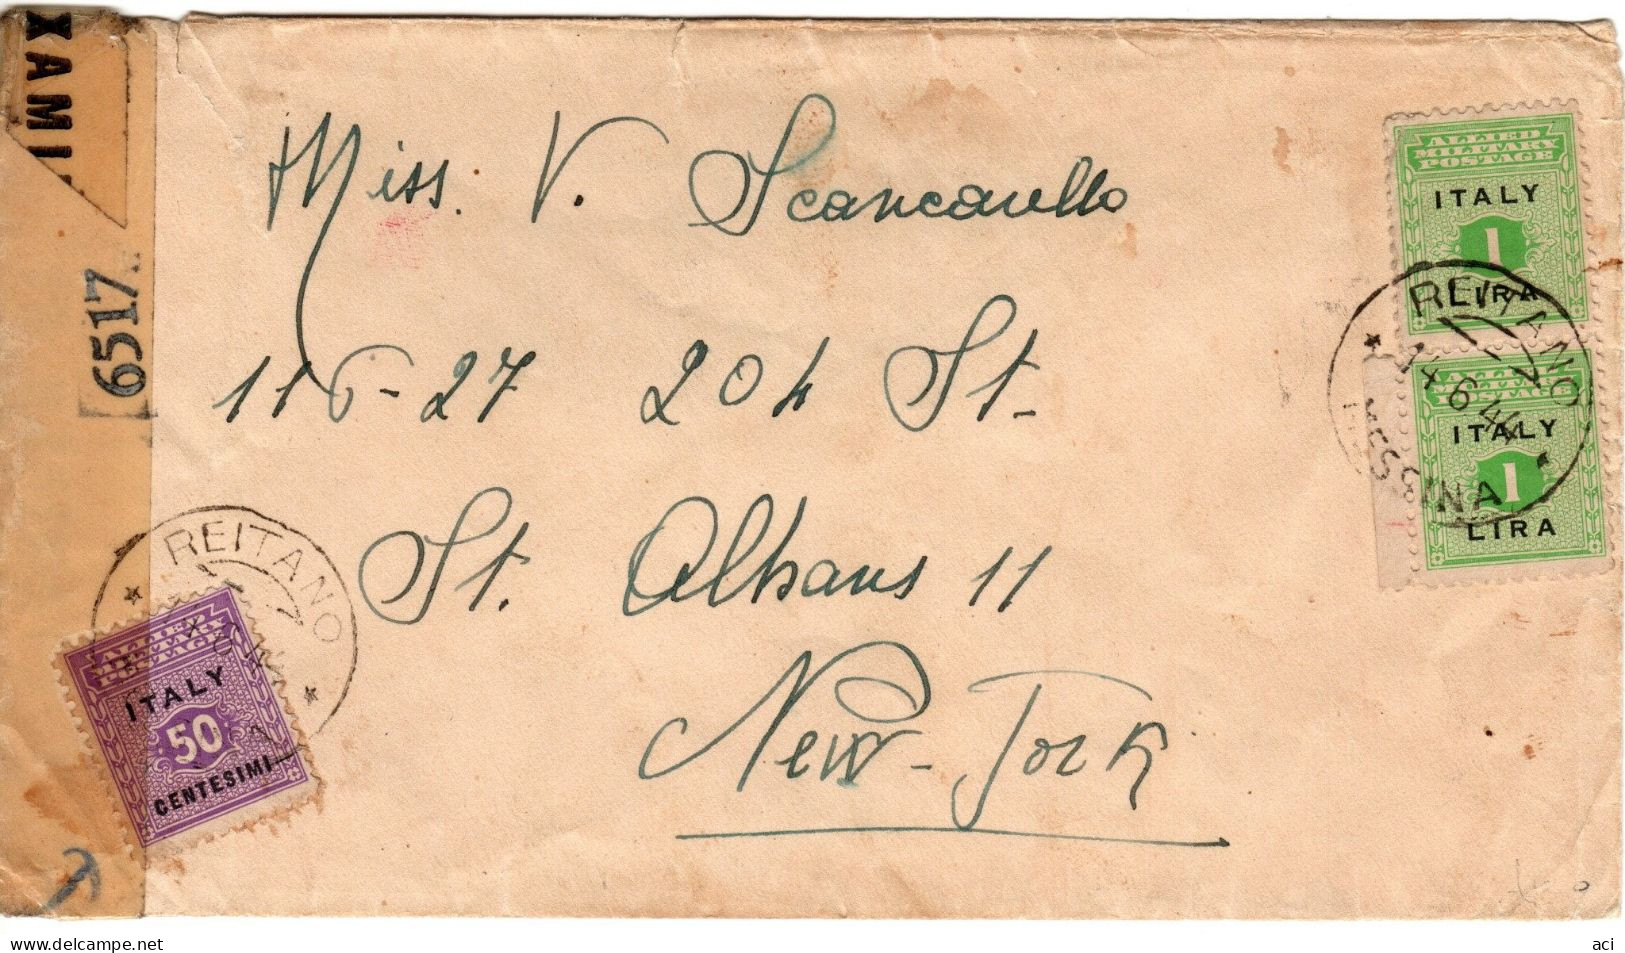 XAMI
6517
Miss. V. Scancarello
116-27 204 St-
St. Albans 11
New-York
ALLIED
MILITARY
POSTAGE
ITALY
1
LIRA
REITANO
6 44
MESSINA
ALLIED
MILITARY
POSTAGE
ITALY
1
LIRA
REITANO
ALLIED
MILITARY
POSTAGE
ITALY
50
CENTESIMI
aci